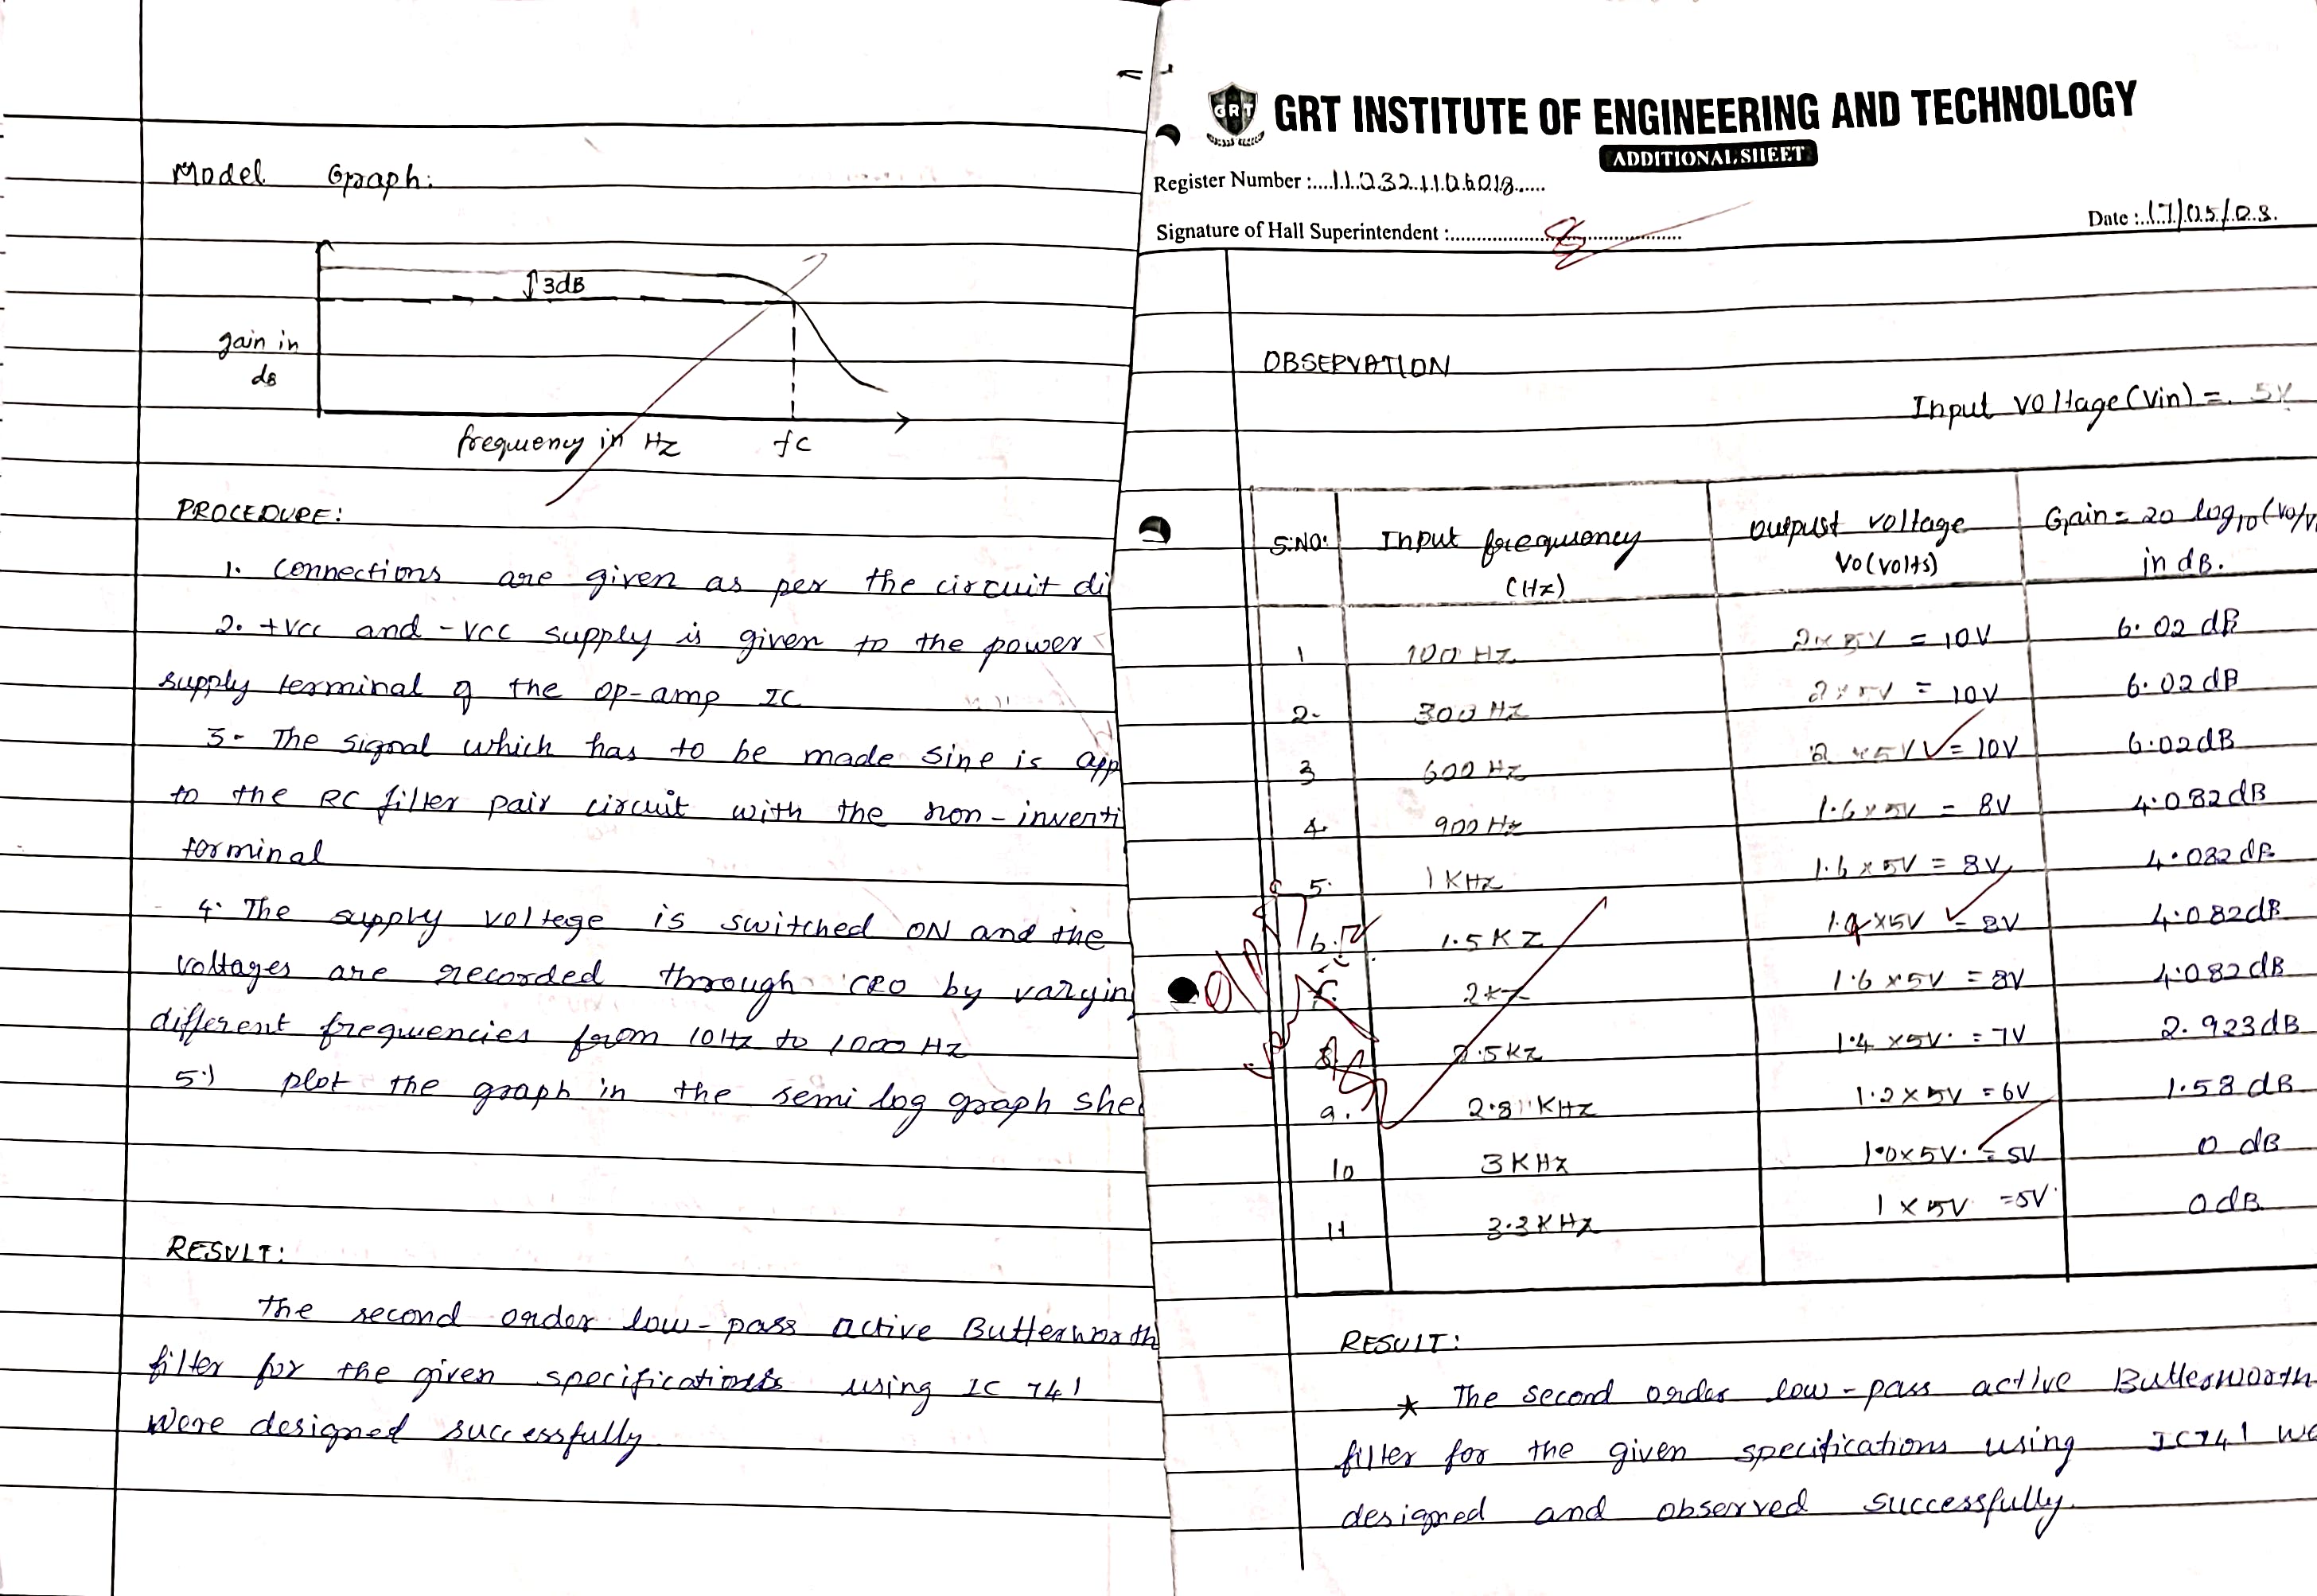 Model Graph:
3dB
gain in
dB
frequency in Hz fc
PROCEDURE:
1. Connections are given as per the circuit di
2. +Vcc and -Vcc supply is given to the power
supply terminal of the op-amp IC
3- The signal which has to be made sine is app
to the RC filter pair circuit with the non-inventi
terminal
4. The supply voltege is switched ON and the
voltages are recorded through CRO by varyin
different frequencies from 10Hz to 1000 Hz
5.) plot the graph in the semi log graph she
RESULT:
The second order low-pass active Butterworth
filter for the given specifications using IC 741
were designed successfully
GRT
GRT INSTITUTE OF ENGINEERING AND TECHNOLOGY
ADDITIONAL SHEET
Register Number :
Signature of Hall Superintendent :
Date : 17/05/03.
OBSERVATION
Input voltage(Vin) = 5V
S.NO: Input frequency (Hz) outpust voltage Vo(volts) Gain = 20 log10(Vo/V in dB.
1 100 Hz 2x5V = 10V 6.02 dB
2- 300 Hz 2x5V = 10V 6.02 dB
3 600 Hz 2x5V = 10V 6.02dB
4. 900 Hz 1.6x5V = 8V 4.082dB
5. 1 KHz 1.6x5V = 8V 4.082 dB
6. 1.5 KZ x5V = 8V 4.082dB
2KZ 1.6x5V = 8V 4.082dB
8. 2.5KZ 1.4 x5V. = 7V 2.923dB
9. 2.8 KHZ 1.2x5V = 6V 1.58 dB
10 3KHz 1.0x5V. = 5V 0 dB
11 3.3KHz 1x5V = 5V 0dB
RESULT:
* The second order low-pass active Butterworth
filter for the given specifications using IC741 we
designed and observed successfully.